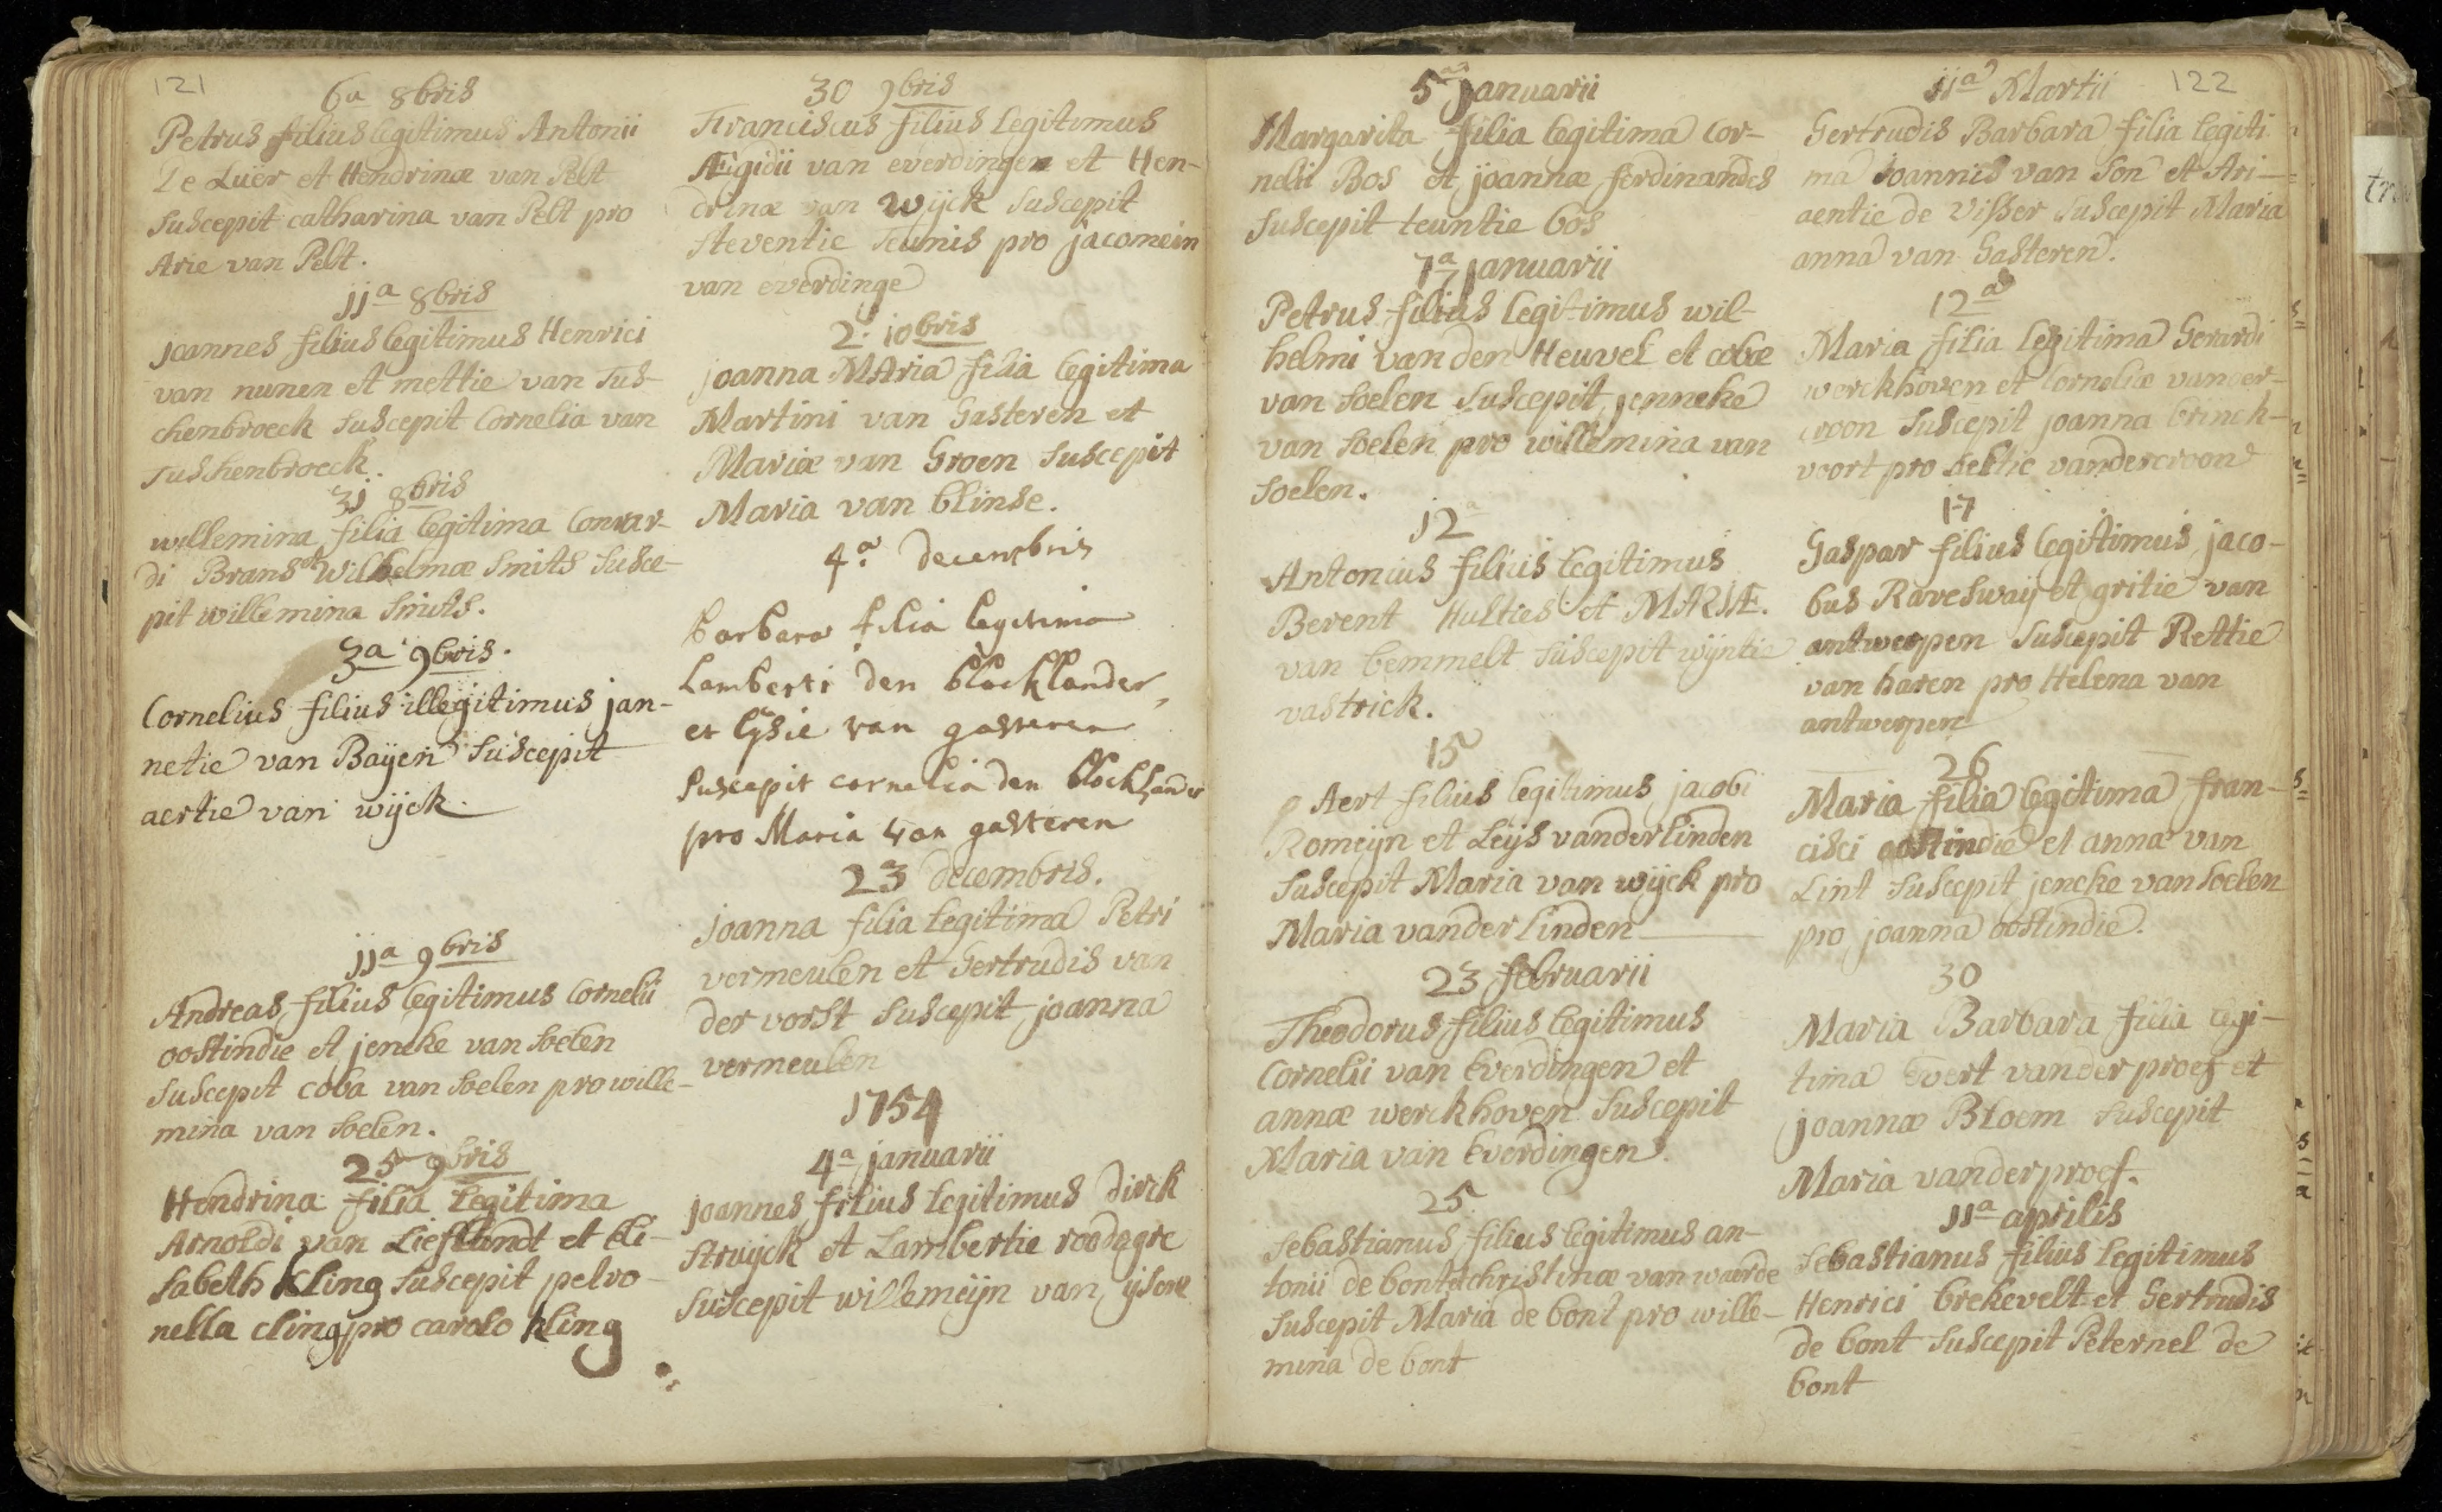 121
6a 8bris
Petrus filius legitimus Antonii
De Luër et Hendrinæ van Pelt
suscepit catharina van Pelt pro
Arie van Pelt.
jja 8bris
joannes filius legitimus Henrici
van nunen et mettie van Tus-
chenbroeck suscepit Cornelia van
Tushenbroeck.
3j 8bris
willemina filia legitima Conrar-
di Brans et Wilhelmæ Smits susce-
pit willemina Smits.
3a 9bris.
Cornelius filius illegitimus jan-
netie van Baÿen suscepit
aertie van wijck.
jja 9bris
Andreas filius legitimus Cornelii
oostindie et jencke van soelen
suscepit coba van soelen pro wille-
mina van soelen.
25 9bris
Hendrina filia legitima
Arnoldi van Lieflandt et Eli-
sabeth Kling suscepit petro-
nella cling pro carolo kling
30 9bris
Franciscus filius legitimus
Ægidii van everdingen et Hen-
drinæ van wijck suscepit
steventie teunis pro jacomein
van everdinge
2. jobris
joanna MAria filia legitima
Martini van Gasteren et
Mariæ van Groen suscepit
Maria van blinse.
4a decembris
barbara filia legitima
Lamberti den blocklander,
et lijsie van gasteren
suscepit cornelia den blocklander
pro Maria van gasteren
23 decembris.
joanna filia legitima Petri
vermeulen et Gertrudis van
der vorst suscepit joanna
vermeulen
1754
4a januarii
joannes filius legitimus dirck
struijck et Lambertie roodagre
suscepit willemeijn van ijsere
5a januarii
Margarita filia legitima Cor-
nelii Bos et joannæ ferdinandes
suscepit teuntie bos
7a januarii
Petrus filius legitimus wil-
helmi van den Heuvel et cobæ
van soelen suscepit jenneke
van soelen pro willemina van
soelen.
12a
Antonius filius legitimus
Berent Hulties et MARIÆ.
van bemmelt suscepit wijntie
vastrick.
15
Aert filius legitimus jacobi
Romeijn et Leijs vanderlinden
suscepit Maria van wijck pro
Maria vander linden
23 februarii
Theodorus filius legitimus
Cornelii van Everdingen et
annæ werckhoven suscepit
Maria van Everdingen.
25.
sebastianus filius legitimus an-
tonii de bont et christinæ van waerde
suscepit Maria de bont pro wille-
mina de bont
122
jja Martii
Gertrudis Barbara filia legiti
ma joannis van son et Ari-
aentie de visser suscepit Maria
anna van Gasteren.
12a
Maria filia legitima Gerardi
werckhoven et Corneliæ vander-
croon suscepit joanna brinck-
voort pro seltie vandercroon
17
Gaspar filius legitimus jaco-
bus Raveswaij et gritie van
antwerpen suscepit Rettie
van haren pro Helena van
antwerpen
26
Maria filia legitima fran-
cisci oostindie et annæ van
Lint suscepit jencke van soelen
pro joanna oostindie.
30
Maria Barbara filia legi-
tima Evert vander proef et
joannæ Bloem suscepit
Maria vanderproef.
jja aprilis
sebastianus filius legitimus
Henrici brekevelt et Gertrudis
de bont suscepit Peternel de
bont